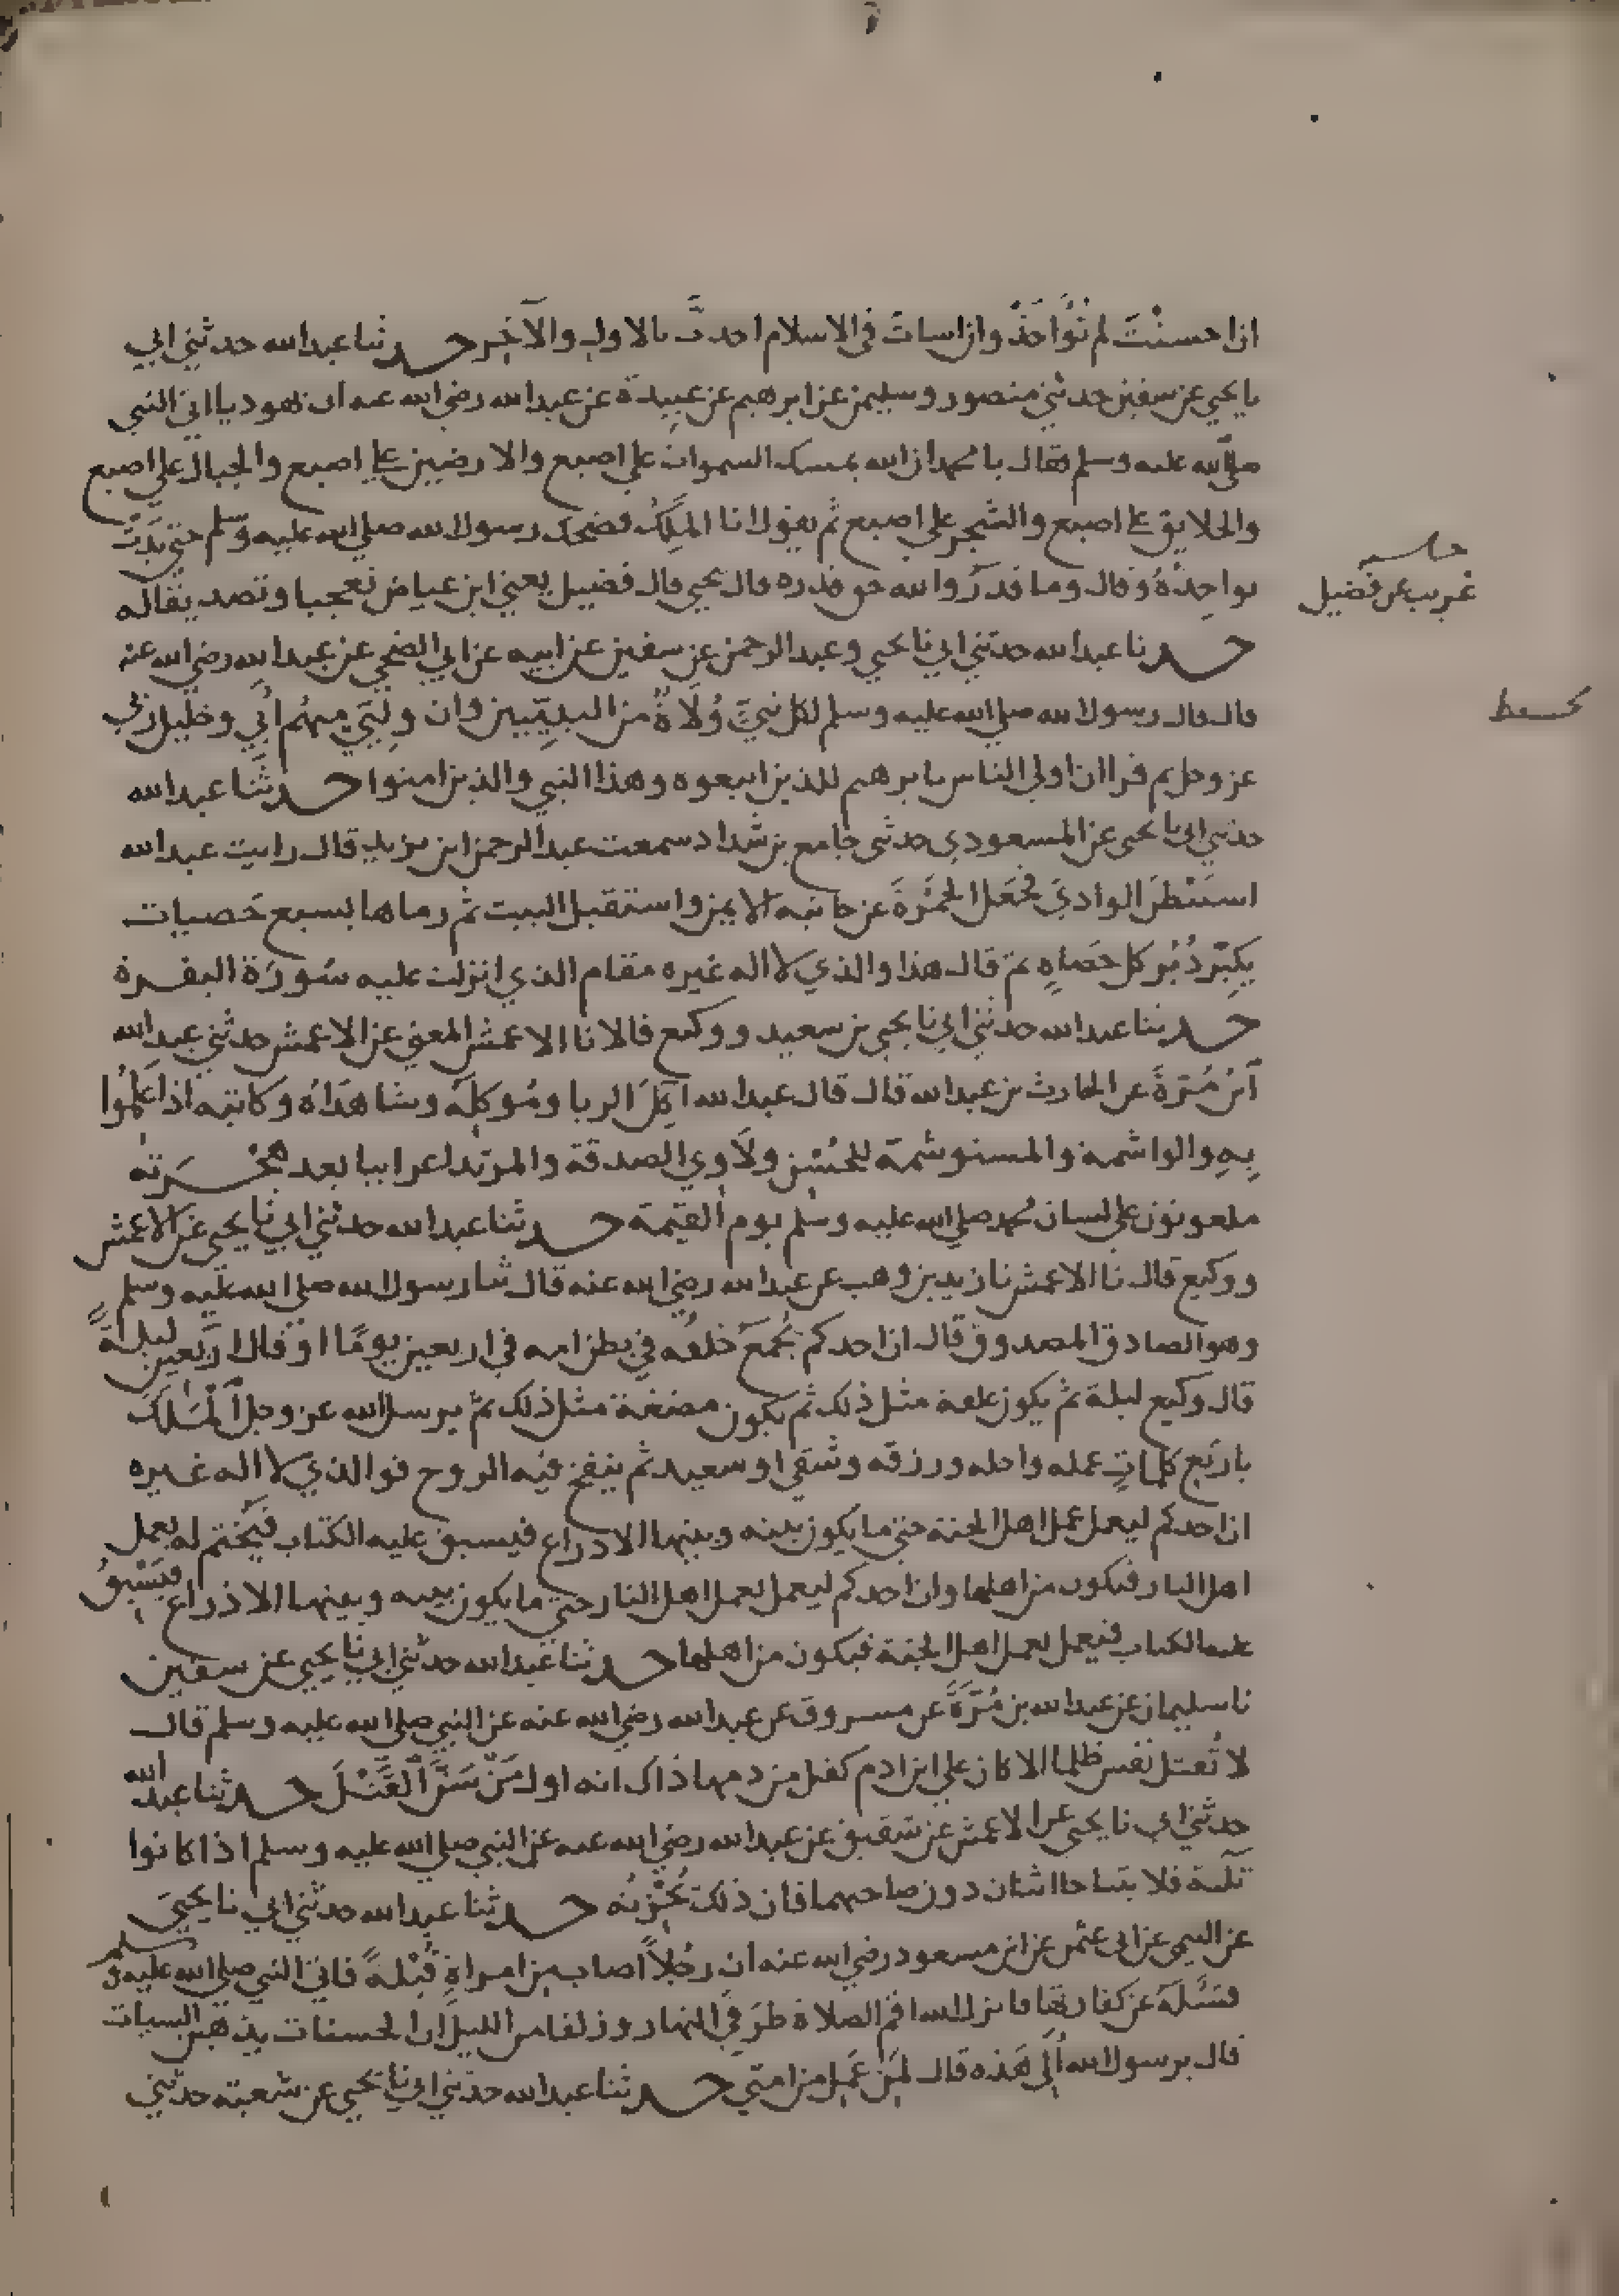 ان احسنت لم تؤاخذ وان اسات في الاسلام اخذت بالاول والاخر حدثنا عبد الله حدثني ابي
نا يحيى عن سفين حدثني منصور وسليمن عن ابرهيم عن عبيدة عن عبد الله رضي الله عنه ان يهوديا اتى النبي
صلى الله عليه وسلم فقال يا محمد ان الله يمسك السموات على اصبع والارضين على اصبع والجبال على اصبع
والخلايق على اصبع والشجر على اصبع ثم يقول انا الملك فضحك رسول الله صلى الله عليه وسلم حتى بدت
نواجذه وقال وما قدروا الله حق قدره قال يحيى قال فضيل يعني ابن عياض تعجبا وتصديقا له
غريب عن فضيل
حدثنا عبد الله حدثني ابي نا يحيى وعبد الرحمن عن سفين عن ابيه عن ابي الضحى عن عبد الله رضي الله عنه
قال قال رسول الله صلى الله عليه وسلم لكل نبي ولاة من النبيين وان وليي منهم ابي وخليل ربي
عز وجل ثم قرا ان اولى الناس بابرهيم للذين اتبعوه وهذا النبي والذين امنوا حدثنا عبد الله
حدثني ابي نا يحيى عن المسعودي حدثني جامع بن شداد سمعت عبد الرحمن ابن يزيد قال رايت عبد الله
استبطن الوادي فجعل الجمرة عن حاجبه الايمن واستقبل البيت ثم رماها بسبع حصيات
يكبر دبر كل حصاة ثم قال هذا والذي لا اله غيره مقام الذي انزلت عليه سورة البقرة
حدثنا عبد الله حدثني ابي نا يحيى بن سعيد ووكيع قالا نا الاعمش المعنى عن الاعمش حدثني عبد الله
ابن مرة عن الحارث بن عبد الله قال قال عبد الله اكل الربا وموكله وشاهداه وكاتبه اذا علموا
به والواشمة والمستوشمة للحسن ولاوي الصدقة والمرتد اعرابيا بعد هجرته
ملعونون على لسان محمد صلى الله عليه وسلم يوم القيمة حدثنا عبد الله حدثني ابي نا يحيى عن الاعمش
ووكيع قال نا الاعمش نا زيد بن وهب عن عبد الله رضي الله عنه قال ثنا رسول الله صلى الله عليه وسلم
وهو الصادق المصدوق قال ان احدكم يجمع خلقه في بطن امه في اربعين يوما او قال اربعين ليلة
قال وكيع ليلة ثم يكون علقة مثل ذلك ثم يكون مضغة مثل ذلك ثم يرسل الله عز وجل الملك
باربع كلمات عمله واجله ورزقه وشقي او سعيد ثم ينفخ فيه الروح فوالذي لا اله غيره
ان احدكم ليعمل عمل اهل الجنة حتى ما يكون بينه وبينها الا ذراع فيسبق عليه الكتاب فيختم له بعمل
اهل النار فيكون من اهلها وان احدكم ليعمل بعمل اهل النار حتى ما يكون بينه وبينها الا ذراع فيسبق
عليه الكتاب فيعمل بعمل اهل الجنة فيكون من اهلها حدثنا عبد الله حدثني ابي نا يحيى عن سفين
نا سليمان عن عبد الله بن مرة عن مسروق عن عبد الله رضي الله عنه عن النبي صلى الله عليه وسلم قال
لا تقتل نفس ظلما الا كان على ابن ادم كفل من دمها ذاك انه اول من سن القتل حدثنا عبد الله
حدثني ابي نا يحيى عن الاعمش عن شقيق عن عبد الله رضي الله عنه عن النبي صلى الله عليه وسلم اذا كانوا
ثلثة فلا يتناجا اثنان دون صاحبهما فان ذلك يحزنه حدثنا عبد الله حدثني ابي نا يحيى
عن التيمي عن ابي عثمن عن ابن مسعود رضي الله عنه ان رجلا اصاب من امراة قبلة فاتى النبي صلى الله عليه وسلم
فسئله عن كفارتها فانزل الله اقم الصلاة طرفي النهار وزلفا من الليل ان الحسنات يذهبن السيات
قال يرسول الله الي هذه قال لمن عمل من امتي حدثنا عبد الله حدثني ابي نا يحيى عن شعبة حدثني